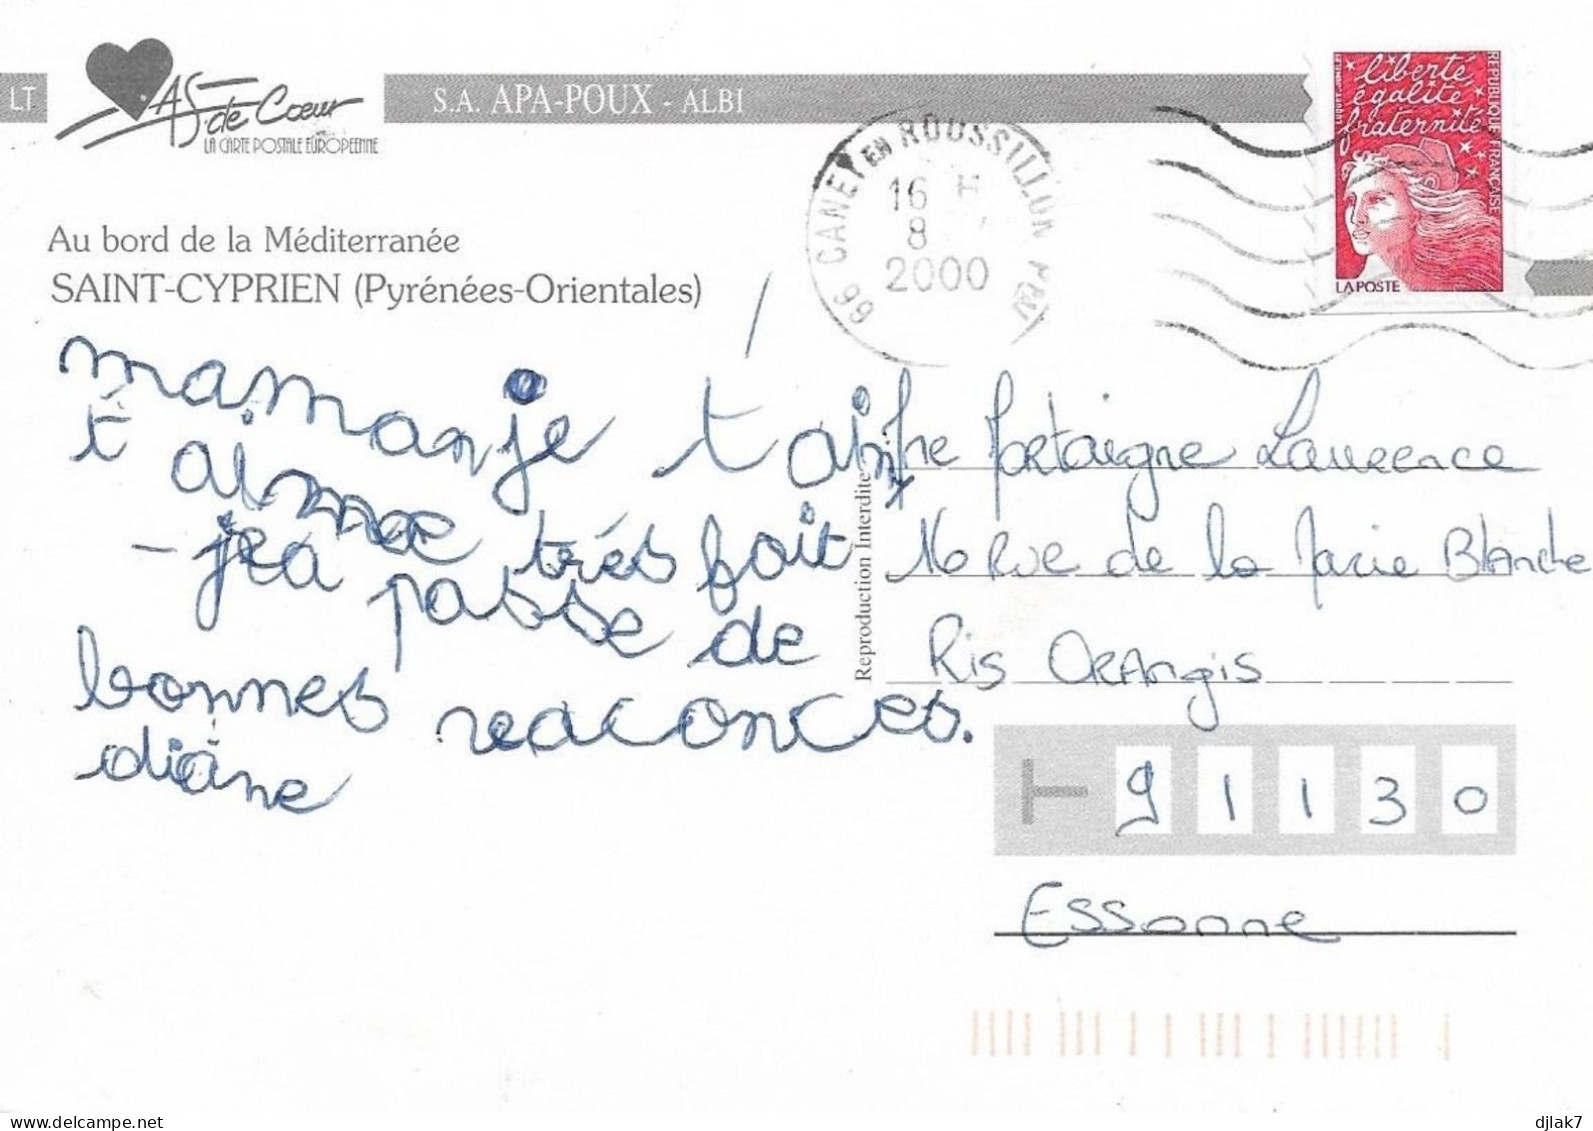 LT
AS de Cœur
LA CARTE POSTALE EUROPEENNE
S.A. APA-POUX - ALBI
66 CANET EN ROUSSILLON P'AU
16 H
8
2000
liberté
égalité
fraternité
REPUBLIQUE FRANCAISE
LA POSTE
Au bord de la Méditerranée
SAINT-CYPRIEN (Pyrénées-Orientales)
maman je t'aim
t aimee très fait
- jea passe de
bonnes vaconces.
diane
Reproduction Interdite
Laurence
16 Rue de la Marie Blanche
Ris Orangis
91130
Essonne
djlak7